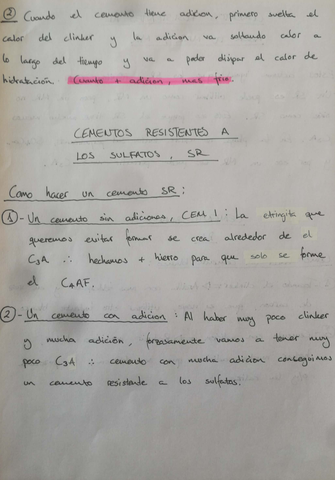 ② Cuando el cemento tiene adicion, primero suelta el
calor del clinker y la adicion va soltando calor a
lo largar del tiempo y va a poder disipar al calor de
hidratación. Cuanto + adicion, mas frio.
CEMENTOS RESISTENTES A
LOS SULFATOS, SR
Como hacer un cemento SR:
① - Un cemento sin adiciones, CEM I: La etringita que
queremos evitar formar se crea alrededor de el
C3A ∴ hechamos + hierro para que solo se forme
el C4AF.
② - Un cemento con adicion: Al haber muy poco clinker
y mucha adición, forzosamente vamos a tener muy
poco C3A ∴ cemento con mucha adicion conseguimos
un cemento resistente a los sulfatos.